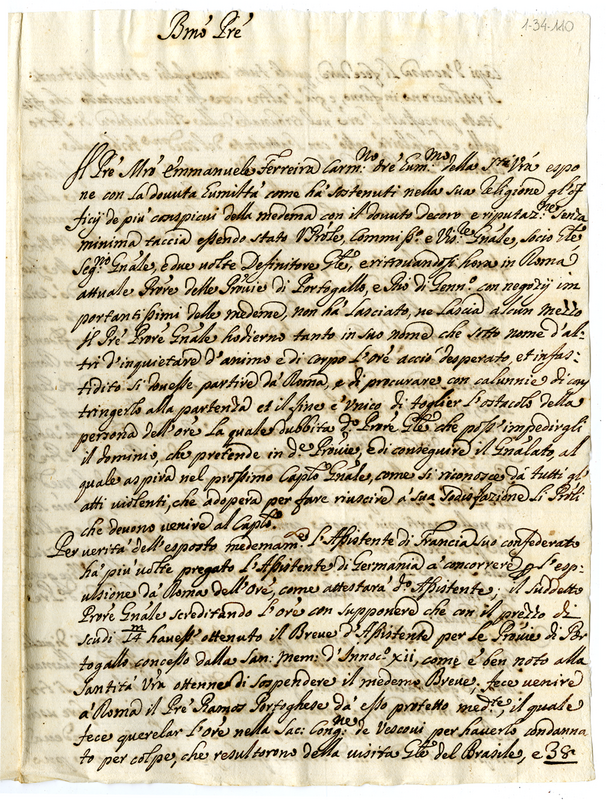 1-34-110
Bmo Pre
Il Pre Mro Emmanuele Ferreira Carm.no Ore Eum.mo della Stà Vrà espo
ne con la dovuta Eumiltà come hà sostenuti nella sua Religione gl'of
ficij de più conspicui della medema con il dovuto decoro e riputaz.ne senza
minima taccia essendo stato V Prole, Commiss.o e Vis.re Gnale, socio Gle
Seg.rio Gnale, e due volte Definitore Gle, e ritrovandosi hora in Roma
attuale Prore delle Provie di Portogallo, e Rio di Genn.o con negozij im
portantissimi delle medeme, non hà lasciato, ne lascia alcun mezzo
Il Pre Prore Gnale hodierno tanto in suo nome, che sotto nome d'al-
tri d'inquietare d'animo e di corpo l'Ore acciò desperato, et infas-
tidito si dovesse partire da Roma, e di procurare con calunnie di cos
tringerlo alla partenza et il fine è Unico di toglier l'ostacolo della
persona dell'ore la quale dubbita d.o Prore Gle che possi impedirgli
il dominio, che pretende in d.e Provie, e di conseguire il Gnalato, al
quale aspira nel prossimo Caplo Gnale, come si riconosce dà tutti gl'
atti violenti, che adopera per fare riuscire à sua sodisfazione li Prili
che devono venire al Caplo.
Per verità dell'esposto medemam.e l'Assistente di Francia suo confederato
hà più volte pregato l'Assistente di Germania à concorrere p l'esp-
ulsione dà Roma dell'Ore, come attestarà d.o Assistente; il suddetto
Prore Gnale screditando l'ore con supponere che con il prezzo di
scudi m/14 havess' ottenuto il Breve d'Assistente per le Provie di Por
togallo concesso dalla San: Mem: d'Innoc.o xii, come è ben noto alla
Santità Vrà ottenne di sospendere il medemo Breve, fece venire
à Roma il Pre Ramos Portoghese dà esso protetto med.te, il quale
fece querelar l'Ore nella Sac: Cong.ne de Vescovi per haverlo condanna
to per colpe, che resultorono della visita Gle del Brasile, e 38